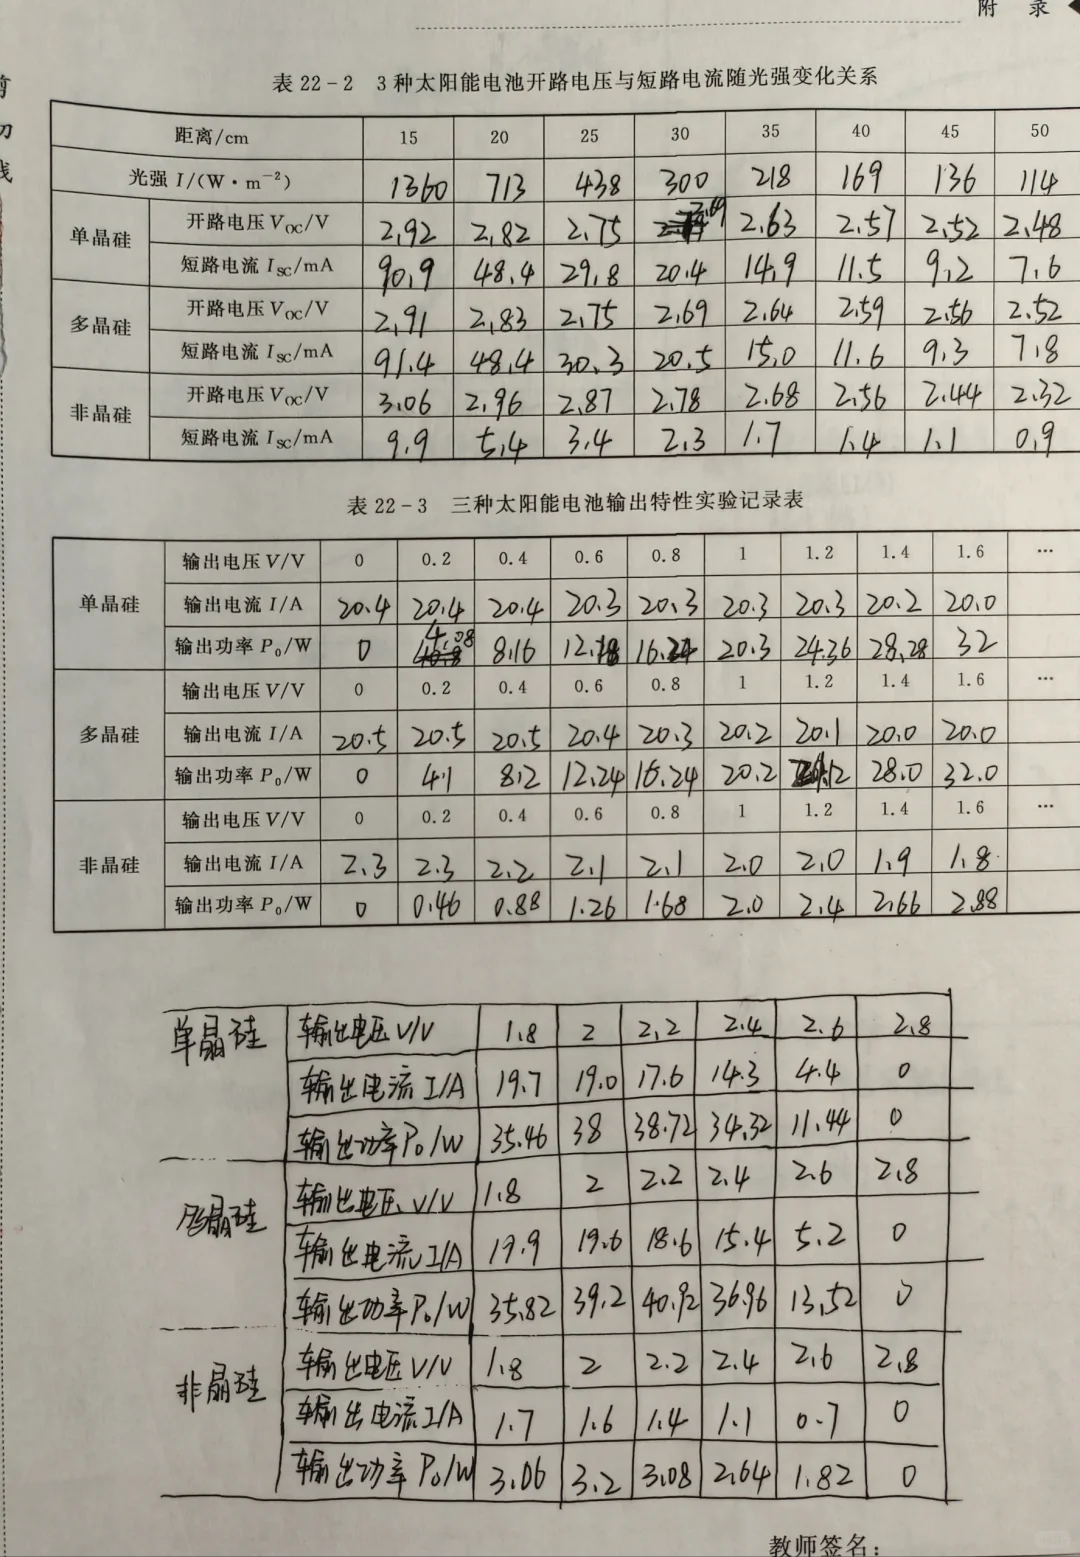 附 录
剪
切
线
表 22-2 3 种太阳能电池开路电压与短路电流随光强变化关系
距离/cm 15 20 25 30 35 40 45 50
光强 I/(W·m⁻²) 1360 713 438 300 218 169 136 114
单晶硅 开路电压 V_OC/V 2.92 2.82 2.75 2.69 2.63 2.57 2.52 2.48
短路电流 I_SC/mA 90.9 48.4 29.8 20.4 14.9 11.5 9.2 7.6
多晶硅 开路电压 V_OC/V 2.91 2.83 2.75 2.69 2.64 2.59 2.56 2.52
短路电流 I_SC/mA 91.4 48.4 30.3 20.5 15.0 11.6 9.3 7.8
非晶硅 开路电压 V_OC/V 3.06 2.96 2.87 2.78 2.68 2.56 2.44 2.32
短路电流 I_SC/mA 9.9 5.4 3.4 2.3 1.7 1.4 1.1 0.9
表 22-3 三种太阳能电池输出特性实验记录表
单晶硅 输出电压 V/V 0 0.2 0.4 0.6 0.8 1 1.2 1.4 1.6 …
输出电流 I/A 20.4 20.4 20.4 20.3 20.3 20.3 20.3 20.2 20.0
输出功率 P₀/W 0 4.08 8.16 12.18 16.24 20.3 24.36 28.28 32
多晶硅 输出电压 V/V 0 0.2 0.4 0.6 0.8 1 1.2 1.4 1.6 …
输出电流 I/A 20.5 20.5 20.5 20.4 20.3 20.2 20.1 20.0 20.0
输出功率 P₀/W 0 4.1 8.2 12.24 16.24 20.2 24.12 28.0 32.0
非晶硅 输出电压 V/V 0 0.2 0.4 0.6 0.8 1 1.2 1.4 1.6 …
输出电流 I/A 2.3 2.3 2.2 2.1 2.1 2.0 2.0 1.9 1.8
输出功率 P₀/W 0 0.46 0.88 1.26 1.68 2.0 2.4 2.66 2.88
单晶硅 输出电压 V/V 1.8 2 2.2 2.4 2.6 2.8
输出电流 I/A 19.7 19.0 17.6 14.3 4.4 0
输出功率 P₀/W 35.46 38 38.72 34.32 11.44 0
多晶硅 输出电压 V/V 1.8 2 2.2 2.4 2.6 2.8
输出电流 I/A 19.9 19.6 18.6 15.4 5.2 0
输出功率 P₀/W 35.82 39.2 40.92 36.96 13.52 0
非晶硅 输出电压 V/V 1.8 2 2.2 2.4 2.6 2.8
输出电流 I/A 1.7 1.6 1.4 1.1 0.7 0
输出功率 P₀/W 3.06 3.2 3.08 2.64 1.82 0
教师签名: